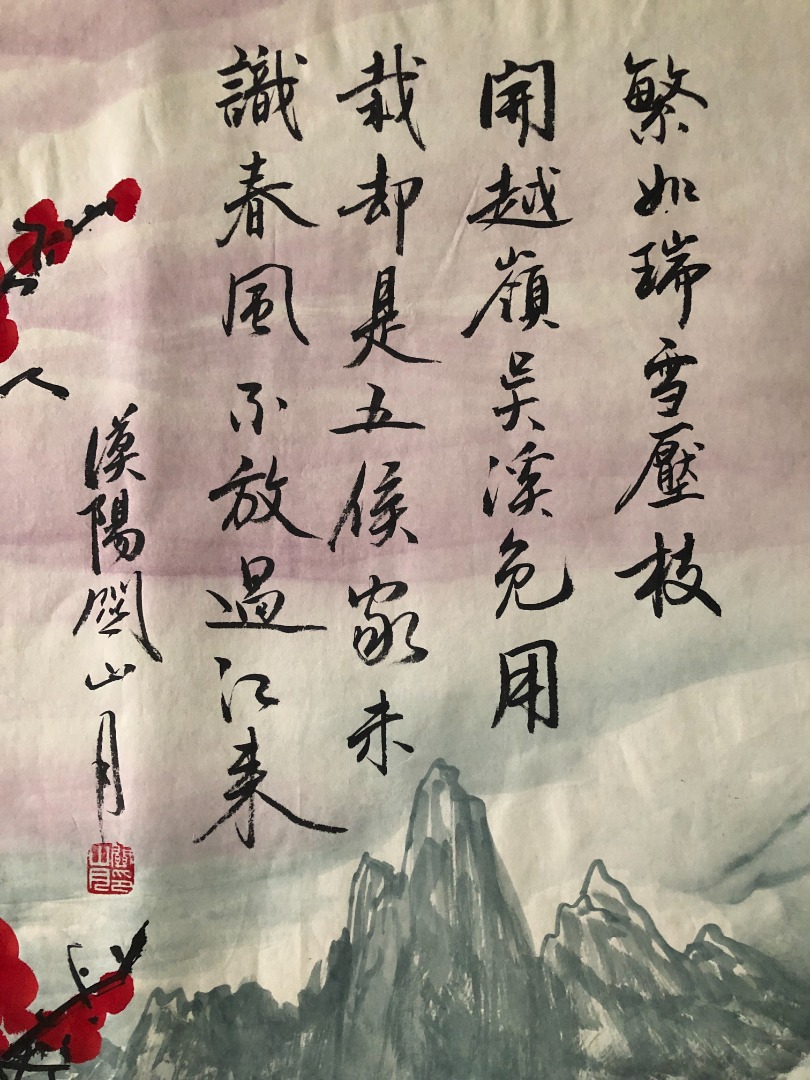 繁如瑞雪壓枝
開越嶺吳溪免用
栽却是五侯家未
識春風不放過江來
漢陽關山月